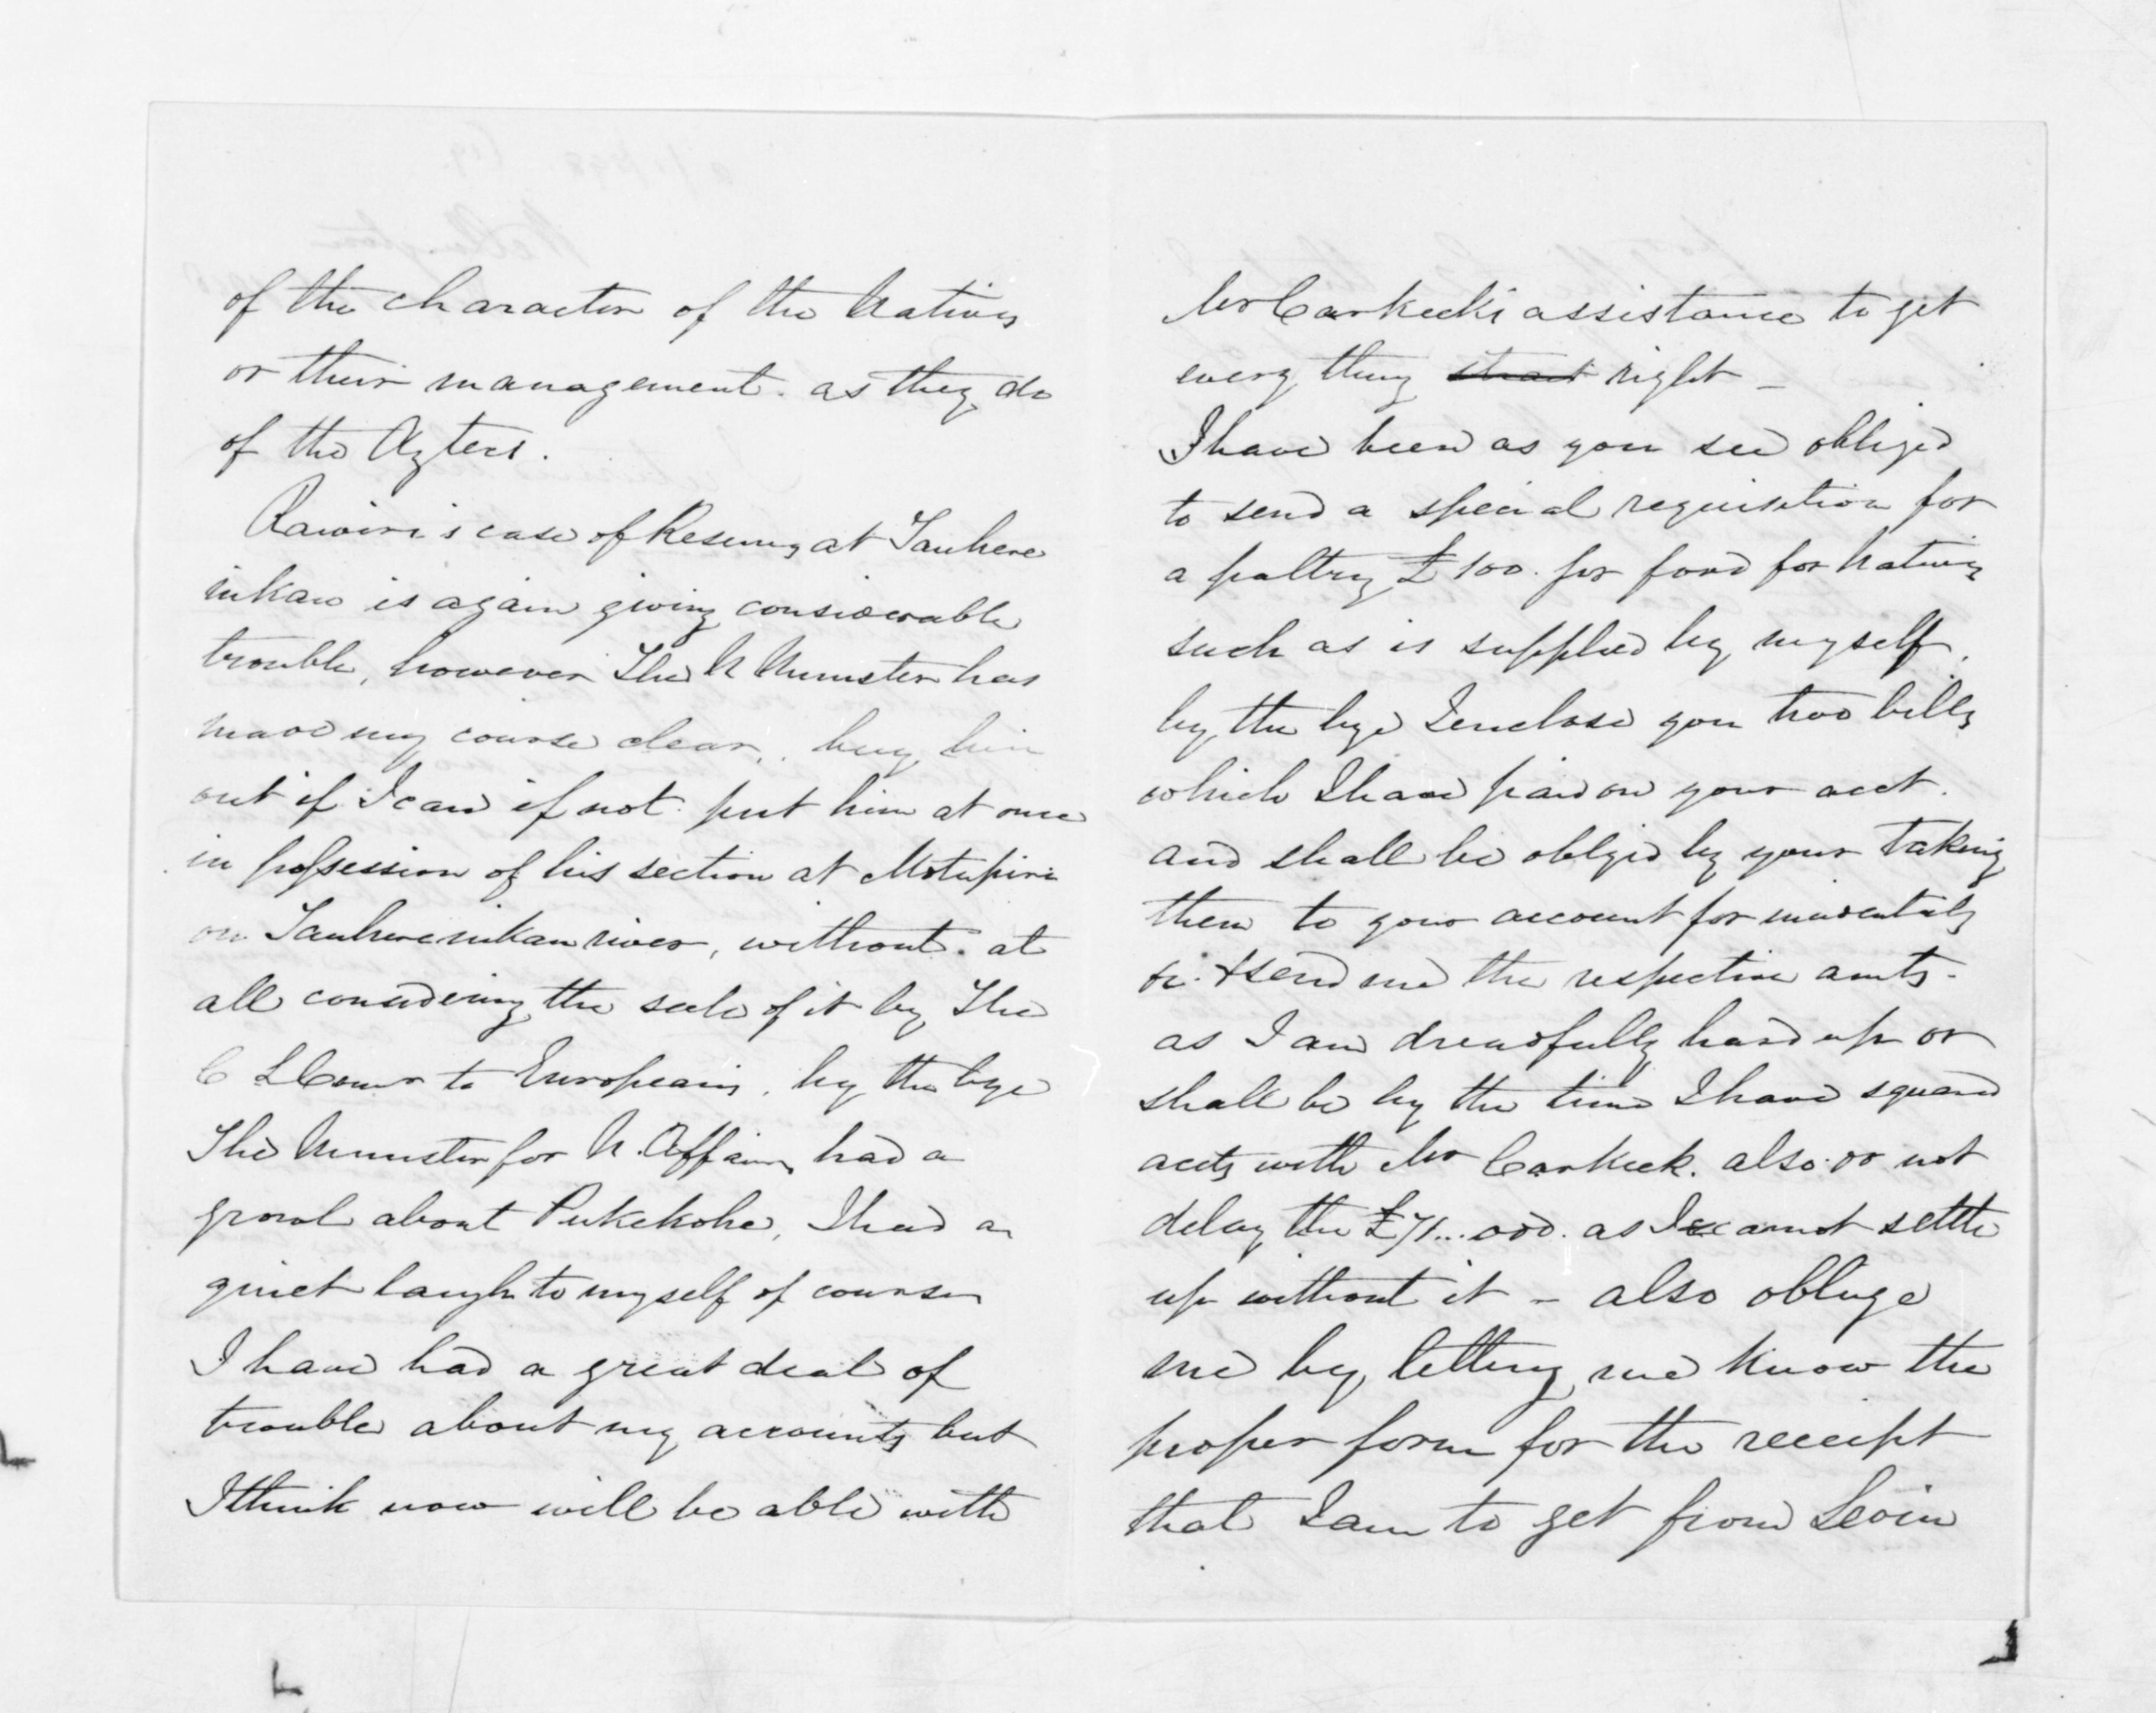 of the character of the Natives
or their management. as they do
of the Aztecs.
Rawiri's case of Reserve at Tauhere
nikau is again giving considerable
trouble, however The N Minister has
made my course clear, buy him
out if I can if not put him at once
in possession of his section at Motupiri
on Tauherenikau river, without at
all considering the sale of it by The
C L Comr to Europeans, by the bye
The Minister for N. Affairs had a
growl about Pukekohe, I had a
quiet laugh to myself of course
I have had a great deal of
trouble about my accounts but
I think now will be able with
Mr Carkeek's assistance to get
every thing right _
I have been as you see obliged
to send a special requisition for
a paltry £100. for food for Natives
such as is supplied by myself.
by the bye I enclose you two bills
which I have paid on your acct.
and shall be oblged by your taking
them to your account for incidentals
&c. & send me the respective amts.
as I am dreadfully hard up or
shall be by the time I have squared
accts with Mr Carkeek. also do not
delay the £71... as I cannot settle
up without it - also obluge
me by letting me know the
proper form for the receipt
that I am to get from Levin